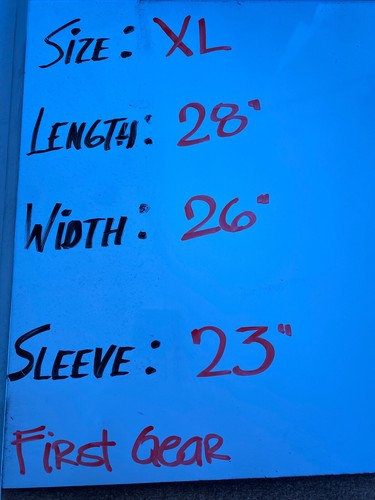 Size: XL
Length: 28"
Width: 26"
Sleeve: 23"
First Gear